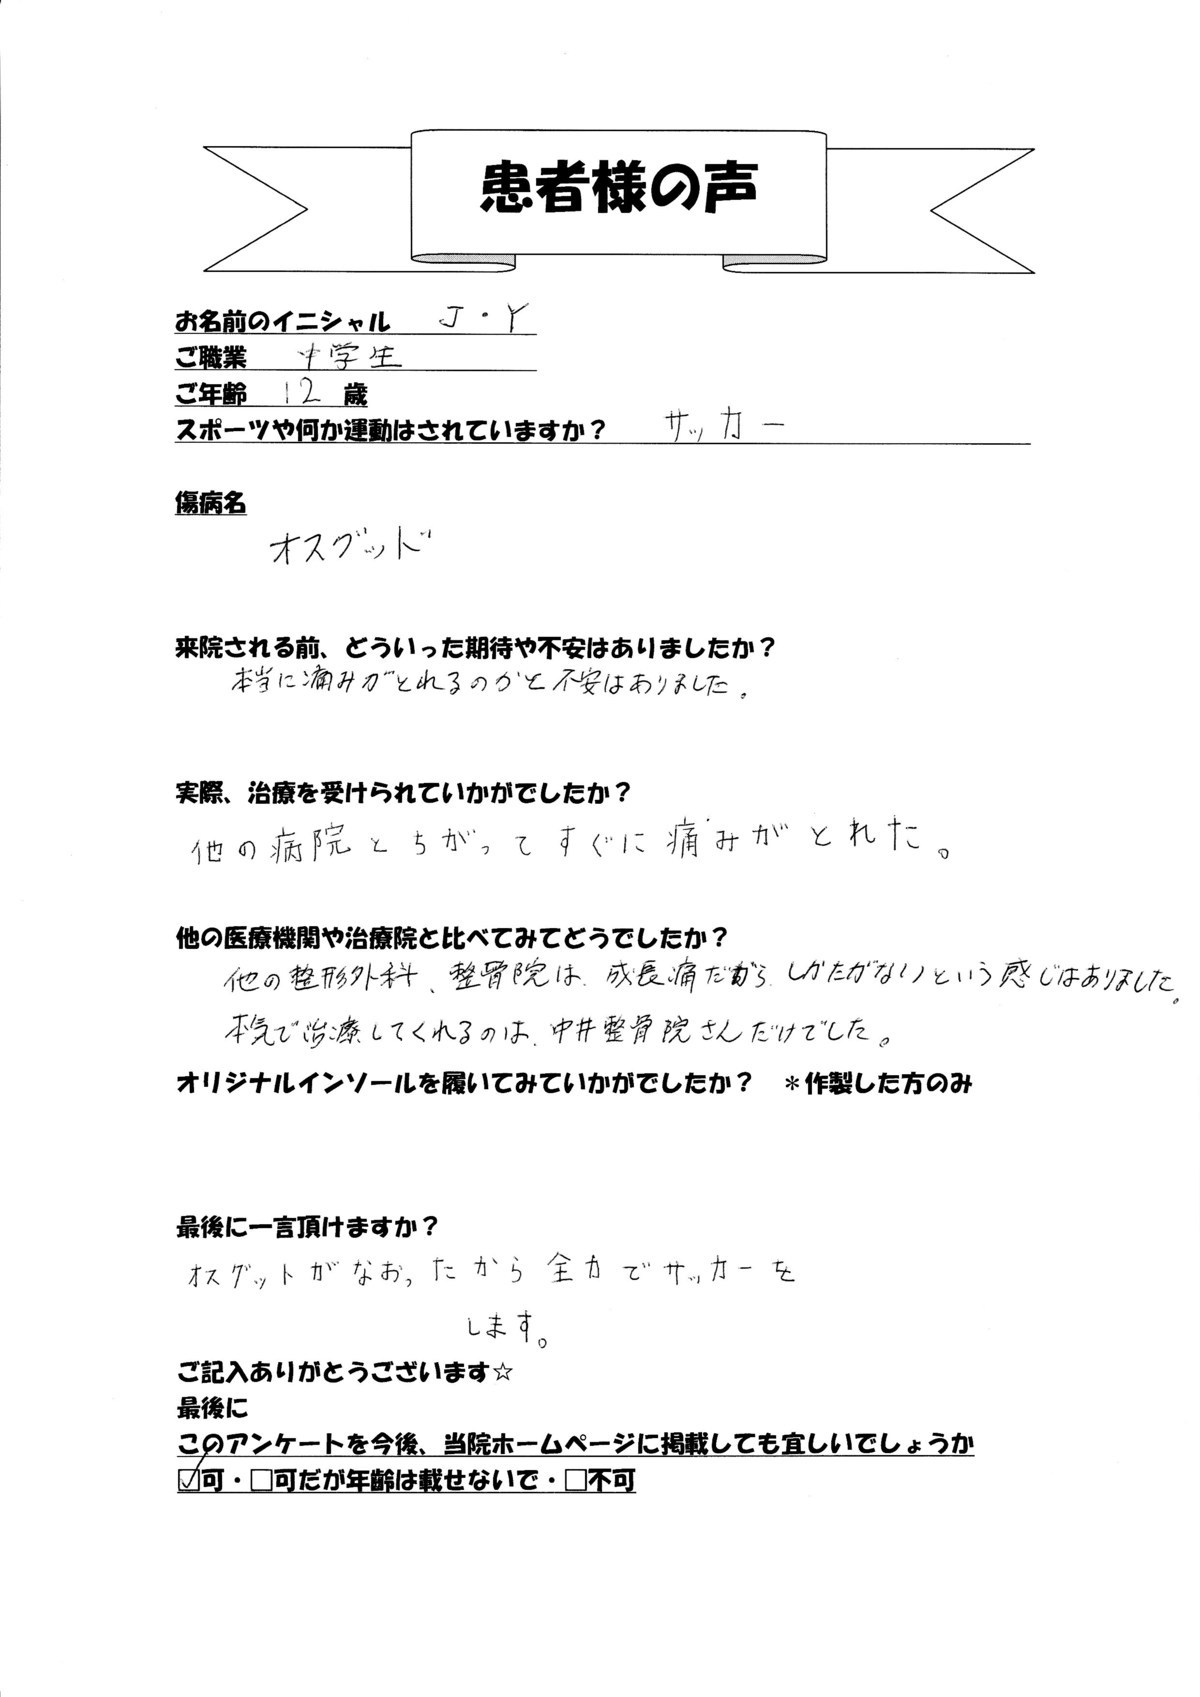 患者様の声
お名前のイニシャル J・Y
ご職業 中学生
ご年齢 12 歳
スポーツや何か運動はされていますか？ サッカー
傷病名
オスグッド
来院される前、どういった期待や不安はありましたか？
本当に痛みがとれるのかと不安はありました。
実際、治療を受けられていかがでしたか？
他の病院とちがってすぐに痛みがとれた。
他の医療機関や治療院と比べてみてどうでしたか？
他の整形外科、整骨院は、成長痛だから、しかたがないという感じはありました。
本気で治療してくれるのは、中井整骨院さんだけでした。
オリジナルインソールを履いてみていかがでしたか？ ＊作製した方のみ
最後に一言頂けますか？
オスグットがなおったから全力でサッカーを
します。
ご記入ありがとうございます☆
最後に
このアンケートを今後、当院ホームページに掲載しても宜しいでしょうか
☑可・□可だが年齢は載せないで・□不可